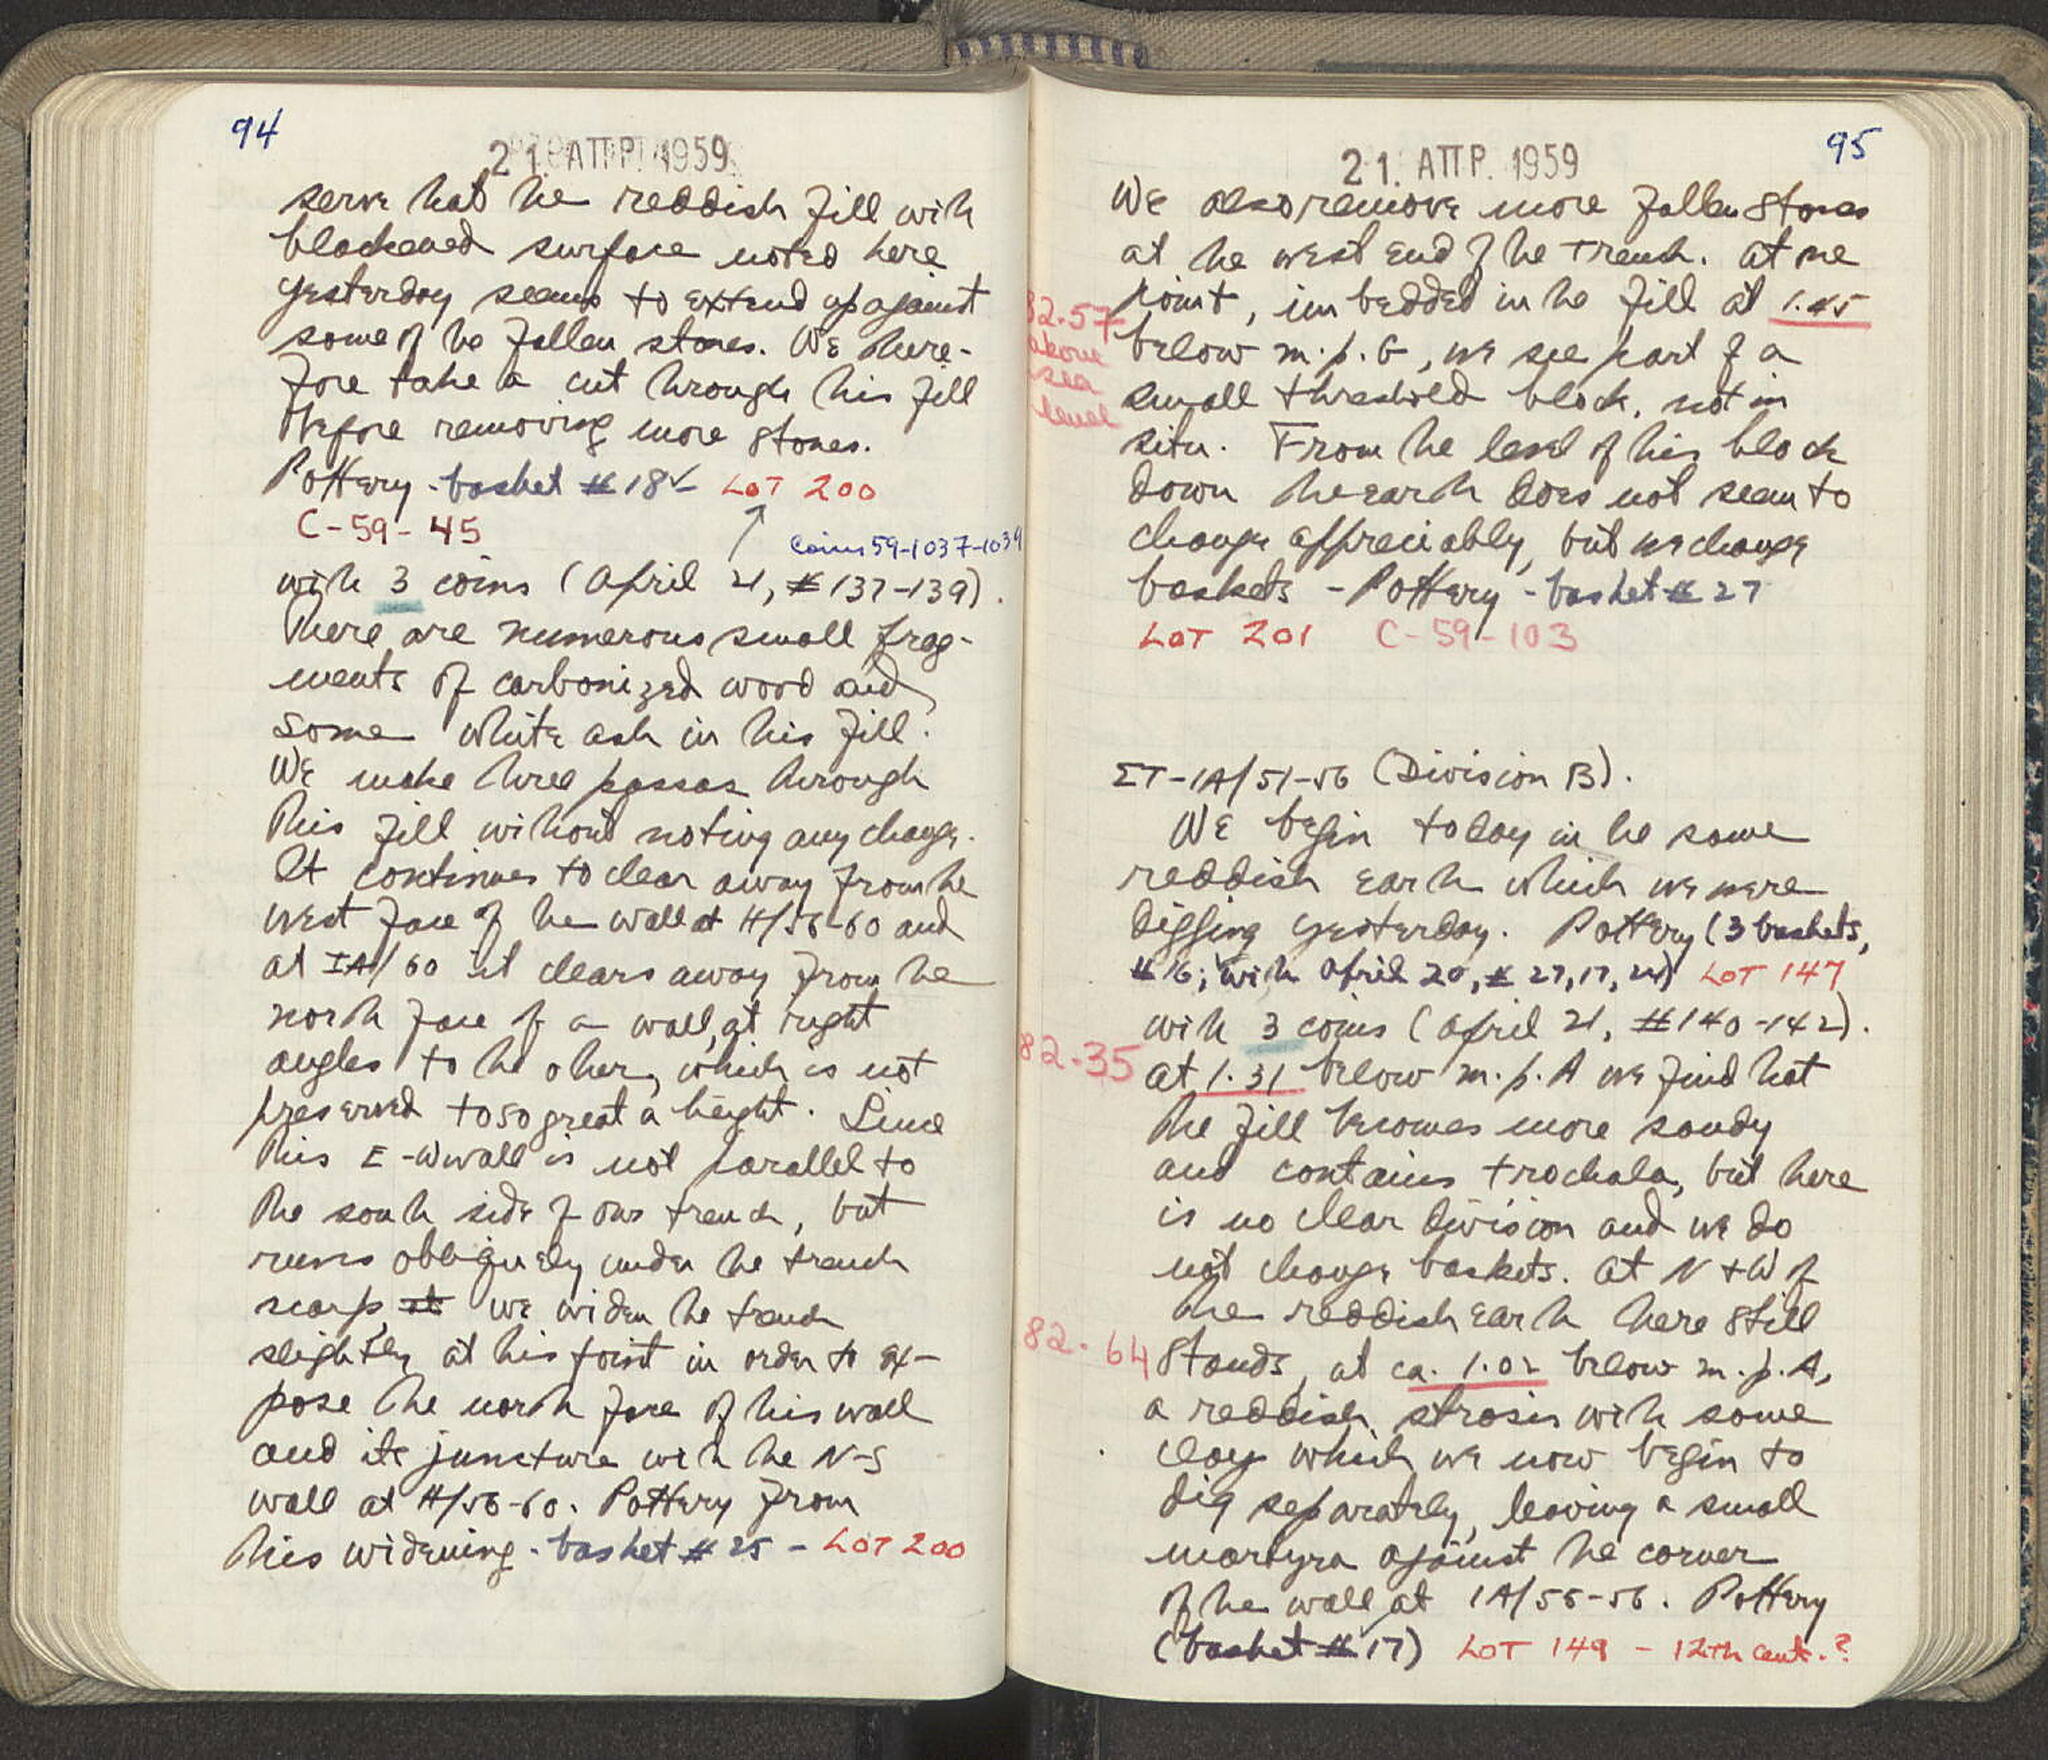 94
21. ΑΠΡ. 1959
serve that the reddish fill with
blackened surface noted here
yesterday seems to extend up against
some of the fallen stones. We there-
fore take a cut through this fill
before removing more stones.
Pottery - basket # 18 ✓ - LOT 200
C-59-45
Coins 59-1037-1039
with 3 coins (April 21, # 137-139).
There are numerous small frag-
ments of carbonized wood and
some white ash in this fill.
We make three passes through
this fill without noting any change.
It continues to clear away from the
west face of the wall at H/56-60 and
at IA/60 it clears away from the
north face of a wall, at right
angles to the other, which is not
preserved to so great a height. Since
this E-W wall is not parallel to
the south side of our trench, but
runs obliquely under the trench
scarp, at we widen the trench
slightly at this point in order to ex-
pose the north face of this wall
and its juncture with the N-S
wall at H/56-60. Pottery from
this widening - basket # 25 - LOT 200
95
21. ΑΠΡ. 1959
We also remove more fallen stones
at the west end of the trench. At one
point, imbedded in the fill at 1.45
82.57
above
sea
level
below m.p. G, we see part of a
small threshold block, not in
situ. From the level of this block
down the earth does not seem to
change appreciably, but we change
baskets - Pottery - basket # 27
LOT 201 C-59-103
ΣΤ-IA/51-56 (Division B).
We begin today in the same
reddish earth which we were
digging yesterday. Pottery (3 baskets,
# 16; with April 20, # 27, 17, 24) LOT 147
with 3 coins (April 21, # 140-142).
82.35
At 1.31 below m.p. A we find that
the fill becomes more sandy
and contains trochala, but there
is no clear division and we do
not change baskets. At N + W of
the reddish earth there still
82.64
stands, at ca. 1.02 below m.p. A,
a reddish strosis with some
clay which we now begin to
dig separately, leaving a small
martyra against the corner
of the wall at IA/55-56. Pottery
(basket # 17) LOT 149 - 12th cent.?